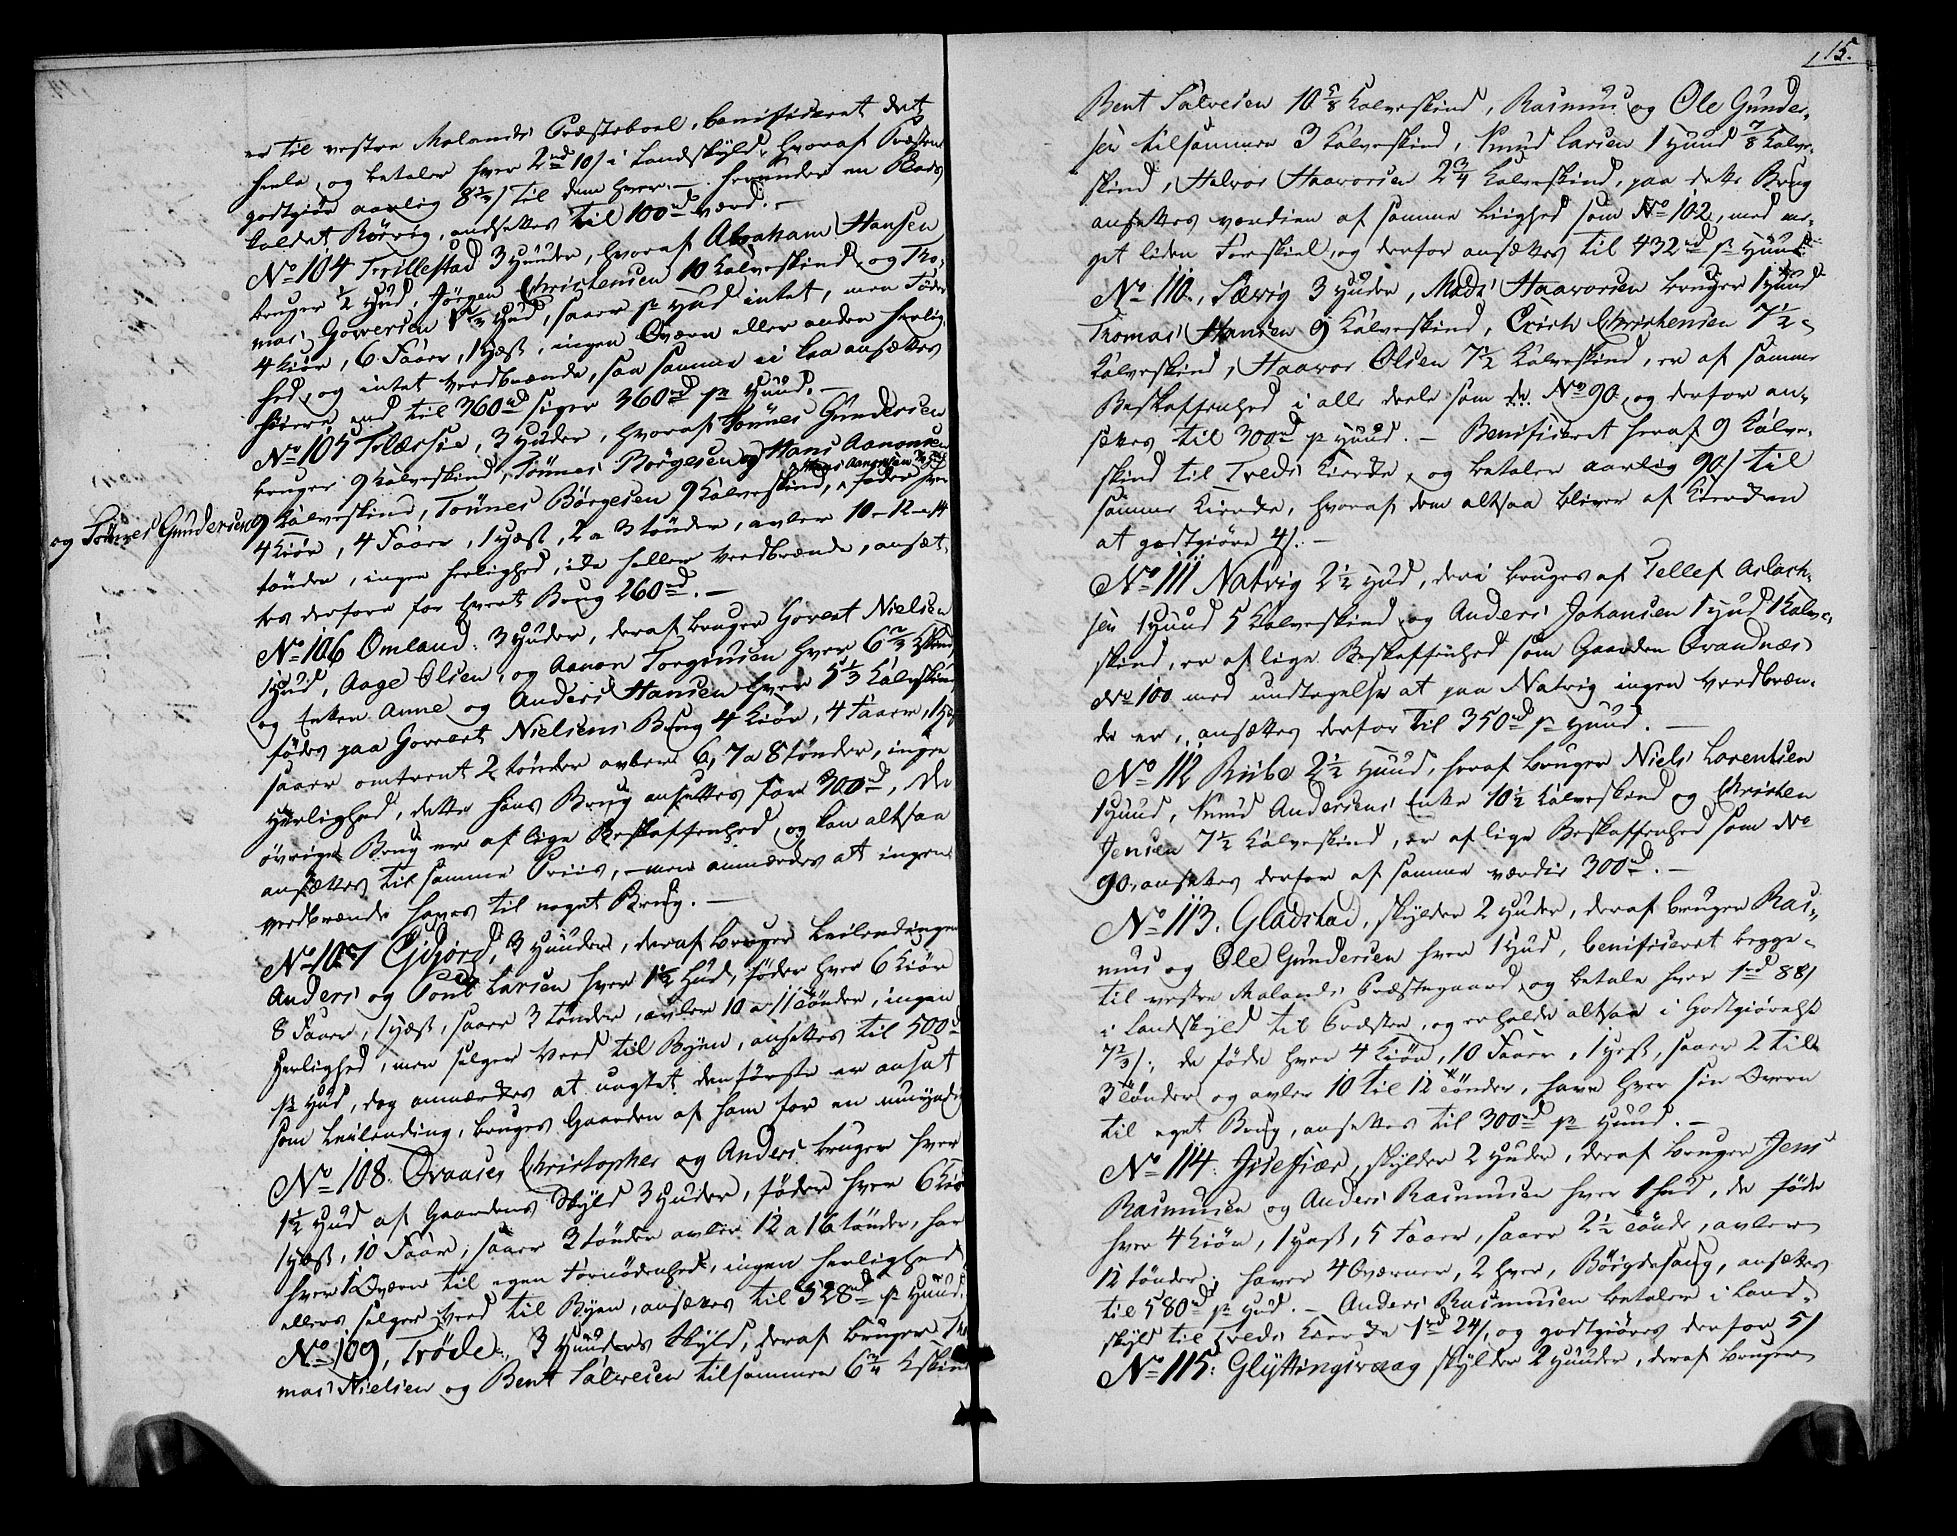 er til vestre Molands Præsteboel, benificeret det
heele, og betaler hver 2rd 10/ i Landskyld, hvoraf Præsten
godtgiør aarlig 8 2/3/ til dem hver. — herunder en Plads
kaldet Rörvig, ansættes til 100rd værd. —
No 104 Trillestad 3 Huuder, hvoraf Abraham Hansen
bruger 1/2 Hud, Jörgen Christensen 10 Kalveskind og Tho-
mas Goversen 1 2/3 Hud, saaer pr Hud intet, men föder
4 Kiör, 6 Faar, 1 Hæst, ingen Qværn eller anden herlig-
hed, og intet Vedbrænde, saa samme ei kan ansættes
höiere end til 360rd siger 360rd pr Huud. —
No 105 Telærsie, 3 Huder, hvoraf Tönnes Gundersen
bruger 9 Kalveskind, Tönnes Börgesen og Hans Aanonsen
9 Kalveskind, Tönnes Börgesen 9 Kalveskind, Hans Aanonsen föder hver
og Tönnes Gundersen
4 Kiör, 4 Faar, 1 Hæst, 2 a 3 tönder, avler 10 - 12 - 14
tönder, ingen herlighed, ide heller Vedbrænde, ansæt-
tes derfore for hvert Brug 260rd. —
No 106 Omland. 3 Huder, deraf bruger Govert Nielsen
1 Hud, Aage Olsen, og Aanon Torginsen hver 6 2/3 Kskind
og Enken Anne og Anders Hansen hver 5 1/3 Kalvskind
födes paa Govert Nielsens Brug 4 Kiör, 4 Faar, 1 Hest
saaer omtrent 2 tönder avler 6, 7 a 8 tönder, ingen
Herlighed, dette hans Brug ansettes for 300rd, de
övrige Brug er af lige Beskaffenhed, og kan altsaa
ansættes til samme Priis, — men anmærkes at ingen
vedbrænde haves til noget Brug. —
No 107 Egsjord, 3 Huuder, deraf bruger Leilendingen
Anders og Poul Larsen hver 1 1/2 Hud, föder hver 6 Kiör
8 Faar, 1 Hæst, saaer 3 tönder, avler 10 a 11 tönder, ingen
herlighed, men selger Veed til Byen, ansettes til 500rd
pr Hud, dog anmærkes at uagtet den förste er ansat
som Leilending, bruges Gaarden af ham for en umyndig
No 108. Qvaases Christopher og Anders bruger hver
1 1/2 Hud af Gaardens Skyld 3 Huder, föder hver 6 Kiör
1 Hæst, 10 Faar, saaer 3 tönder avler 12 a 16 tönder, har
hver 1 Qværn til egen Fornödenhed, ingen herlighed
ellers selger Veed til Byen, ansættes til 528rd pr Huud.
No 109, Tröde, 3 Huuders Skyld, deraf bruger Tho-
mas Nielsen og Bent Salvesen tilsammen 6 3/4 Kskind
115.
Bent Salvesen 10 5/8 Kalveskind, Rasmus og Ole Gunder-
sen tilsammen 3 Kalveskind, Knud Larsen 1 Huud 7/8 Kalve-
skind, Halvor Haavorsen 2 3/4 Kalveskind, paa dette Brug
ansettes værdien af samme liighed som No 102, med me-
get liden Forskiel, og derfor ansættes til 432rd pr Huud.
No 110, Særig 3 Huder, Mads Haavorsen bruger 1 Huud
Thomas Hansen 9 Kalveskind, Erich Christensen 7 1/2
Kalveskind, Haavor Olsen 7 1/2 Kalveskind, er af samme
Beskaffenhed i alle deele som No 90, og derfor an-
settes til 300rd pr Huud. — Benificeret heraf 9 Kalve-
skind til Treds Kierke, og betaler aarlig 90/ til
samme Kierke, hvoraf dem altsaa bliver af Kierken
at godtgiöre 4/. —
No 111 Natvig 2 1/2 Hud, deri bruges af Tellef Aslach-
sen 1 Huud 5 Kalveskind og Anders Johansen 1 Hud 1 Kalve-
skind, er af lige Beskaffenhed som Gaarden Qvandnæs
No 100 med undtagelse at paa Natvig ingen Vedbræn-
de er, ansættes derfor til 350rd pr Huud. —
No 112 Riibe 2 1/2 Huud, heraf bruger Niels Lorentsen
1 Huud, Knud Andersens Enke 10 1/2 Kalveskind og Christen
Jensen 7 1/2 Kalveskind, er af lige Beskaffenhed som No
90, ansettes derfor af samme værdie 300rd. —
No 113. Gladstad, skylder 2 Huder, deraf bruger Ras-
mus og Ole Gundersen hver 1 Hud, benificeret begge
til vestre Molands Præstegaard, og betale hver 1rd 88/
i Landskyld til Præsten, og erholde altsaa i Godtgiörelse
7 2/3/. de föde hver 4 Kiör, 10 Faar, 1 Hest, saaer 2 til
3 tönder og avler 10 til 12 tönder, have hver sin Qværn
til eget Brug, ansettes til 300rd pr Huud. —
No 114. Jssefiær, skylder 2 Huder, deraf bruger Jens
Rasmusen og Anders Rasmusen hver 1 Hud, de föde
hver 4 Kiör, 1 Hest, 5 Faar, saaer 2 1/2 tönde, avler
12 tönder, haver 4 Qværner, 2 hver, Böigdesaug, ansættes
til 580rd pr Hud. — Anders Rasmusen betaler i Land-
skyld til Treds Kierke 1rd 24/, og godtgiöres derfor 5/
No 115. Glyttingsvaag skylder 2 Huuder, deraf bruger